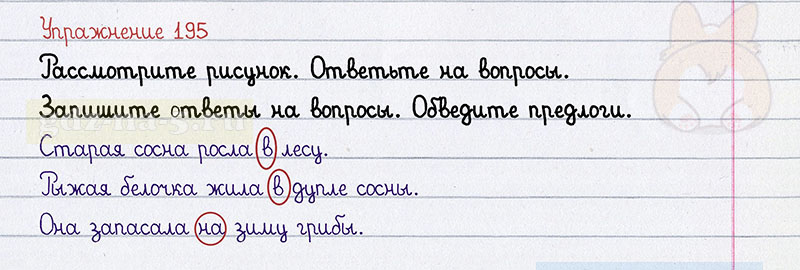 Упражнение 195
Рассмотрите рисунок. Ответьте на вопросы.
Запишите ответы на вопросы. Обведите предлоги.
Старая сосна росла в лесу.
Рыжая белочка жила в дупле сосны.
Она запасала на зиму грибы.